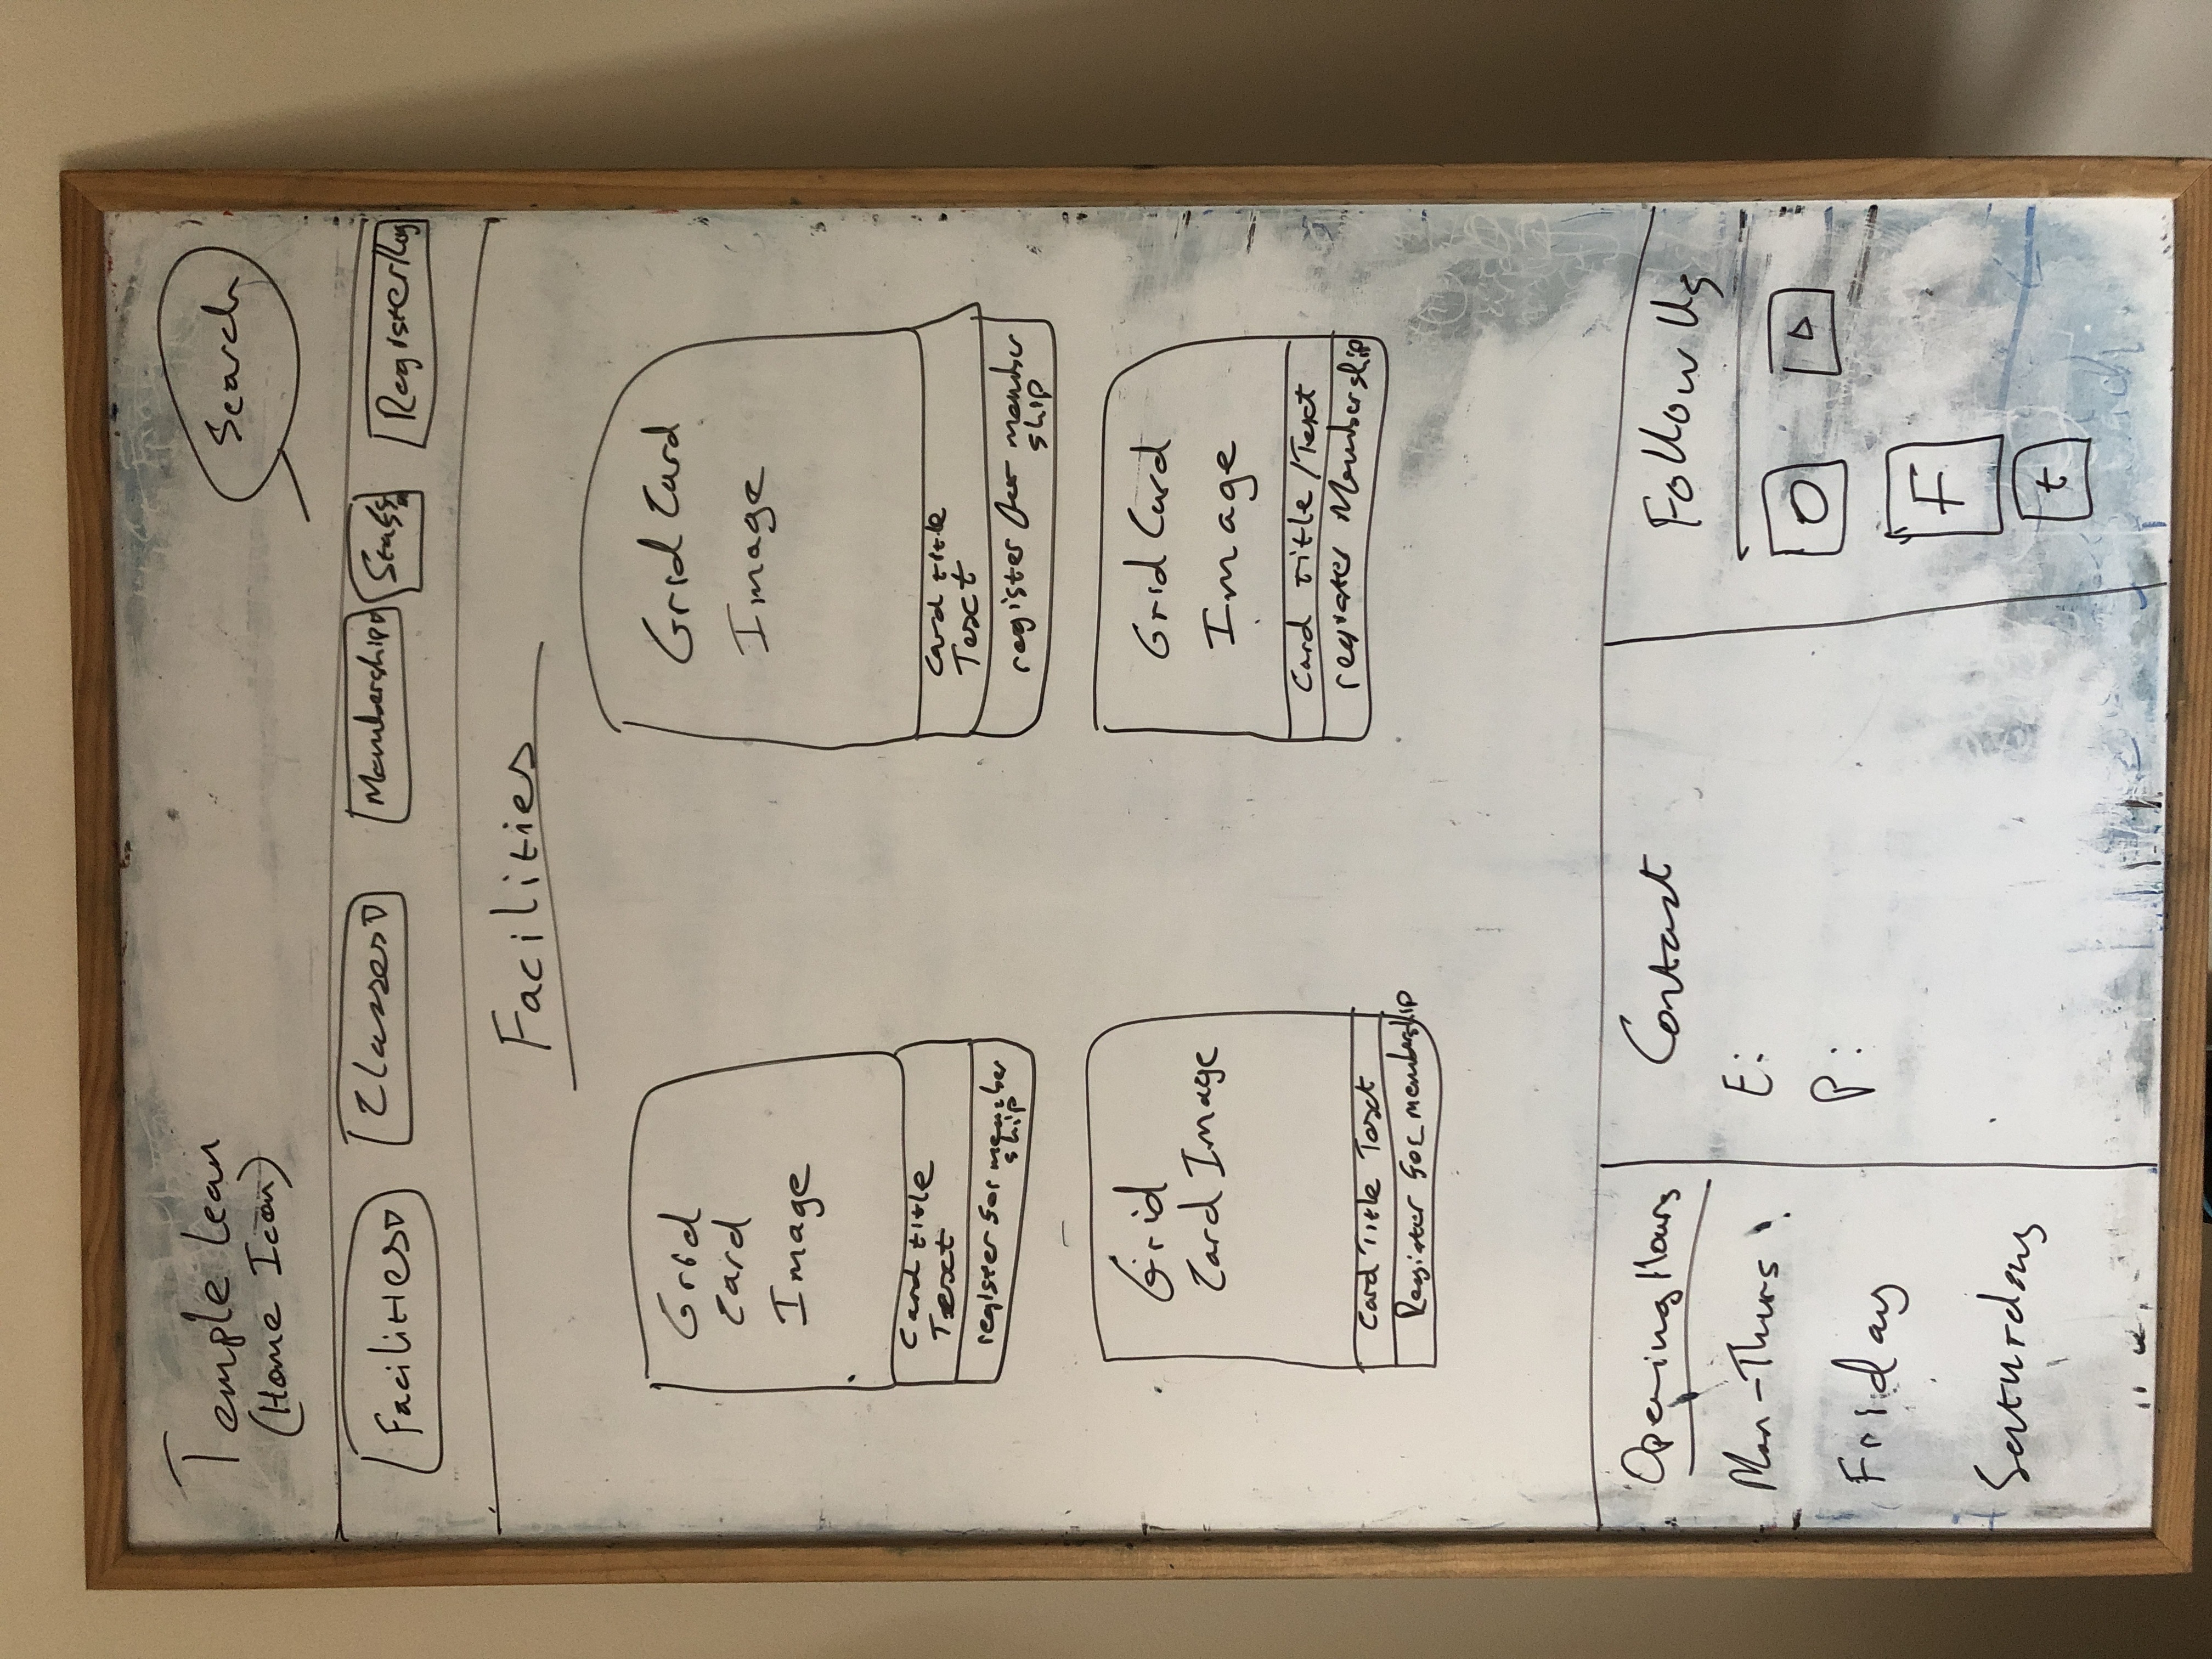 Temple lean
(Home Icon)
Search
Facilities
Classes
Membership
Staff
Register/log
Facilities
Grid
Card
Image
Card title
Text
register for member
ship
Grid Card
Image
Card title
Text
register for member
ship
Grid
Card Image
Card Title Text
Register for membership
Grid Card
Image
Card Title / Text
register Membership
Opening Hours
Mon-Thurs:
Friday
Saturday
Contact
E:
P:
Follow Us
F
t